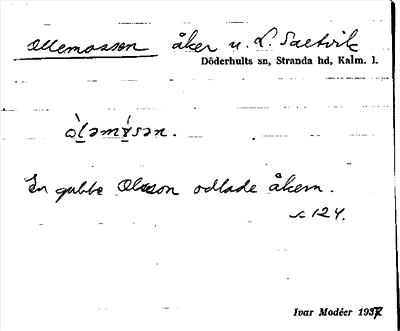 Ollemossen åker u. L. Saltvik
Döderhults sn, Stranda hd, Kalm. l.
En gubbe Olsson odlade åkern.
s. 124.
Ivar Modéer 1937